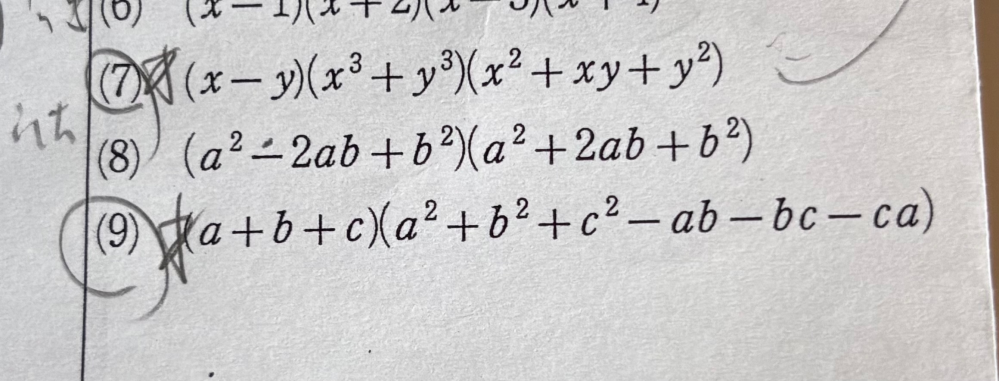 (7) (x − y)(x³ + y³)(x² + xy + y²)
(8) (a² − 2ab + b²)(a² + 2ab + b²)
(9) (a + b + c)(a² + b² + c² − ab − bc − ca)